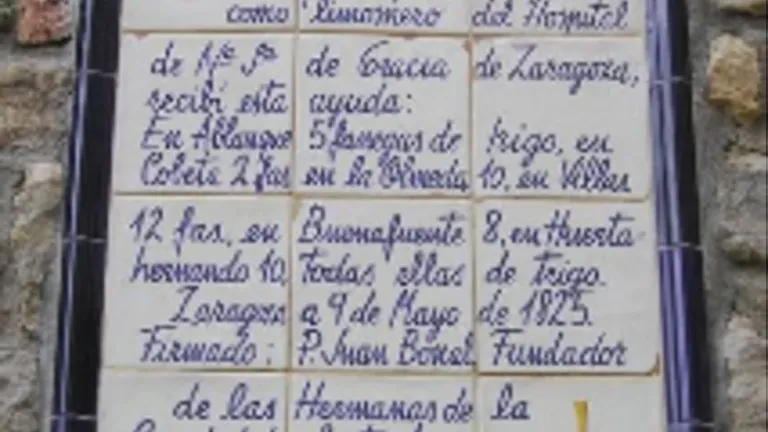 como limosnero del Hospital
de Nª Sª de Gracia de Zaragoza,
recibí esta ayuda:
En Ablanque 5 fanegas de trigo, en
Cobeta 2 fas, en la Olmeda 10, en Villar
12 fas, en Buenafuente 8, en Huerta-
hernando 10, Todas ellas de trigo.
Zaragoza a 9 de Mayo de 1825.
Firmado: P. Juan Bonal Fundador
de las Hermanas de la